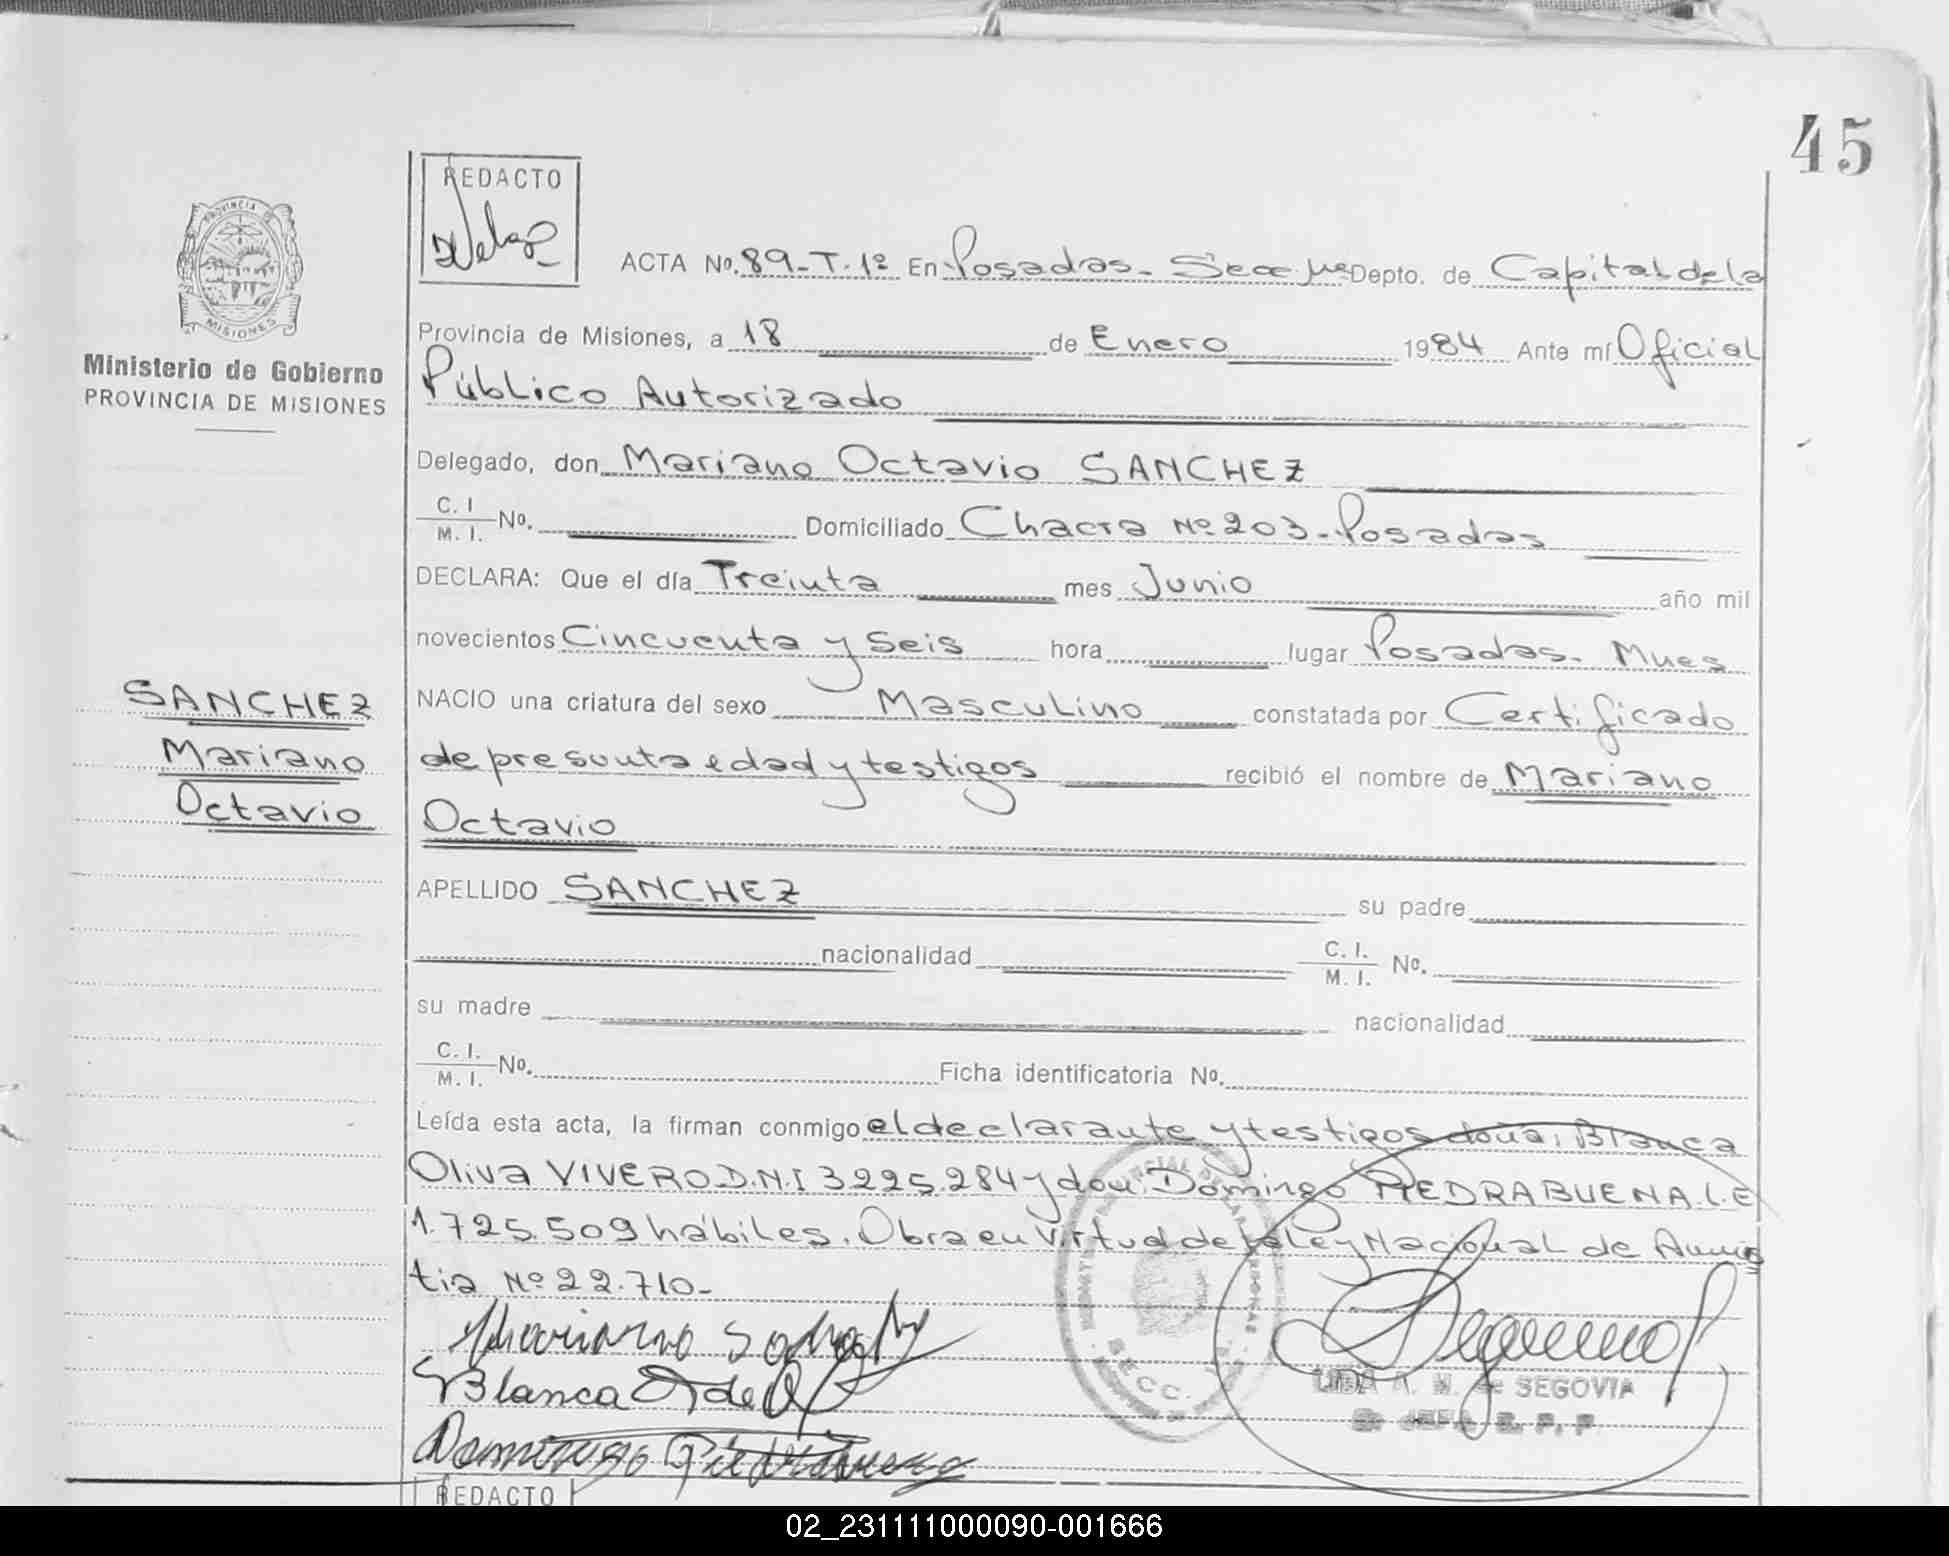 45
REDACTO
PROVINCIA DE
MISIONES
Ministerio de Gobierno
PROVINCIA DE MISIONES
ACTA No. 89-T.1º En Posadas. Secc. 1ra Depto. de Capital de la
Provincia de Misiones, a 18 de Enero 1984 Ante mí Oficial
Público Autorizado
Delegado, don Mariano Octavio SANCHEZ
C. I / M. I. No. Domiciliado Chacra Nº 203-Posadas
DECLARA: Que el día Treinta mes Junio año mil
novecientos Cincuenta y Seis hora lugar Posadas. Mnes
SANCHEZ
Mariano
Octavio
NACIO una criatura del sexo Masculino constatada por Certificado
de presunta edad y testigos recibió el nombre de Mariano
Octavio
APELLIDO SANCHEZ su padre
nacionalidad C. I. / M. I. No.
su madre nacionalidad
C. I. / M. I. No. Ficha identificatoria No.
Leída esta acta, la firman conmigo el declarante y testigos doña: Blanca
Oliva VIVERO D.N.I 3225.284 y don: Domingo PIEDRABUENA L.E
1.725.509 hábiles. Obra en virtud de la Ley Nacional de Amnis
tía Nº 22.710-
Mariano
Blanca
Domingo Piedrabuena
SECC.
A. M. de SEGOVIA
REDACTO
02_231111000090-001666